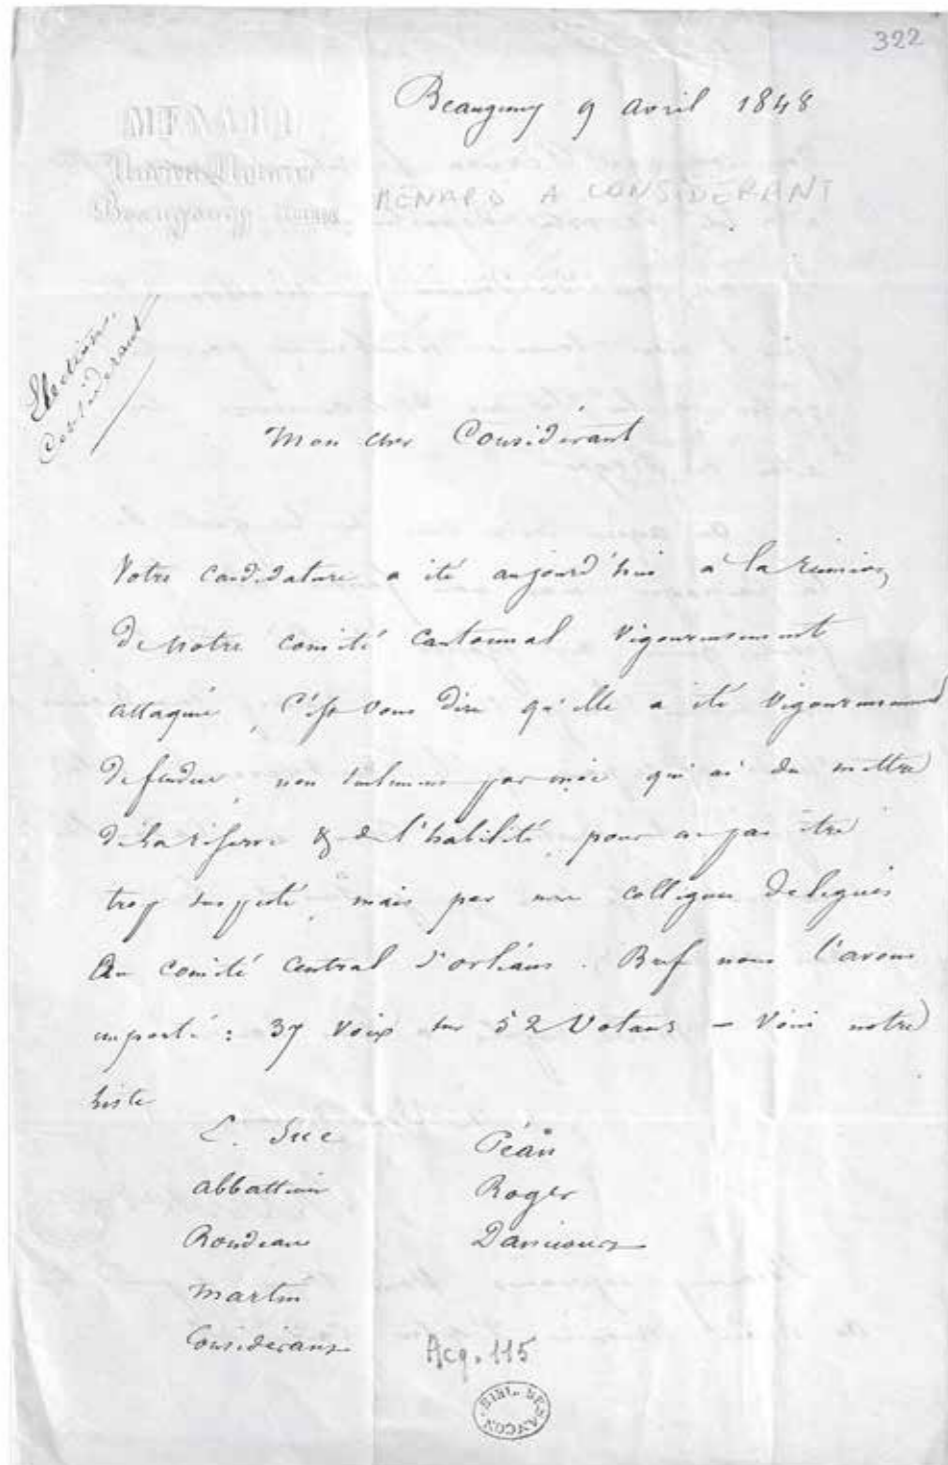 322
Beaugency 9 avril 1848
MENARD
Ancien Notaire
Beaugency (Loiret)
MÉNARD A CONSIDERANT
Elections.
Considerant
Mon cher Considérant
Votre candidature a été aujourd'hui à la réunion
de notre comité cantonnal vigoureusement
attaquée, C'est vous dire qu'elle a été vigoureusement
defendue, non seulement par moi qui ai du mettre
de la réserve & de l'habilité pour ne pas être
trop suspecté, mais par mes collègues delegués
au comité central d'orléans. Bref nous l'avons
emporté : 37 voix sur 52 Votans – Voici notre
liste
E. Sue
Péan
abbattucci
Roger
Rondeau
Danicourt
Martin
Considerant
Acq. 115
BIBL. BESANÇON